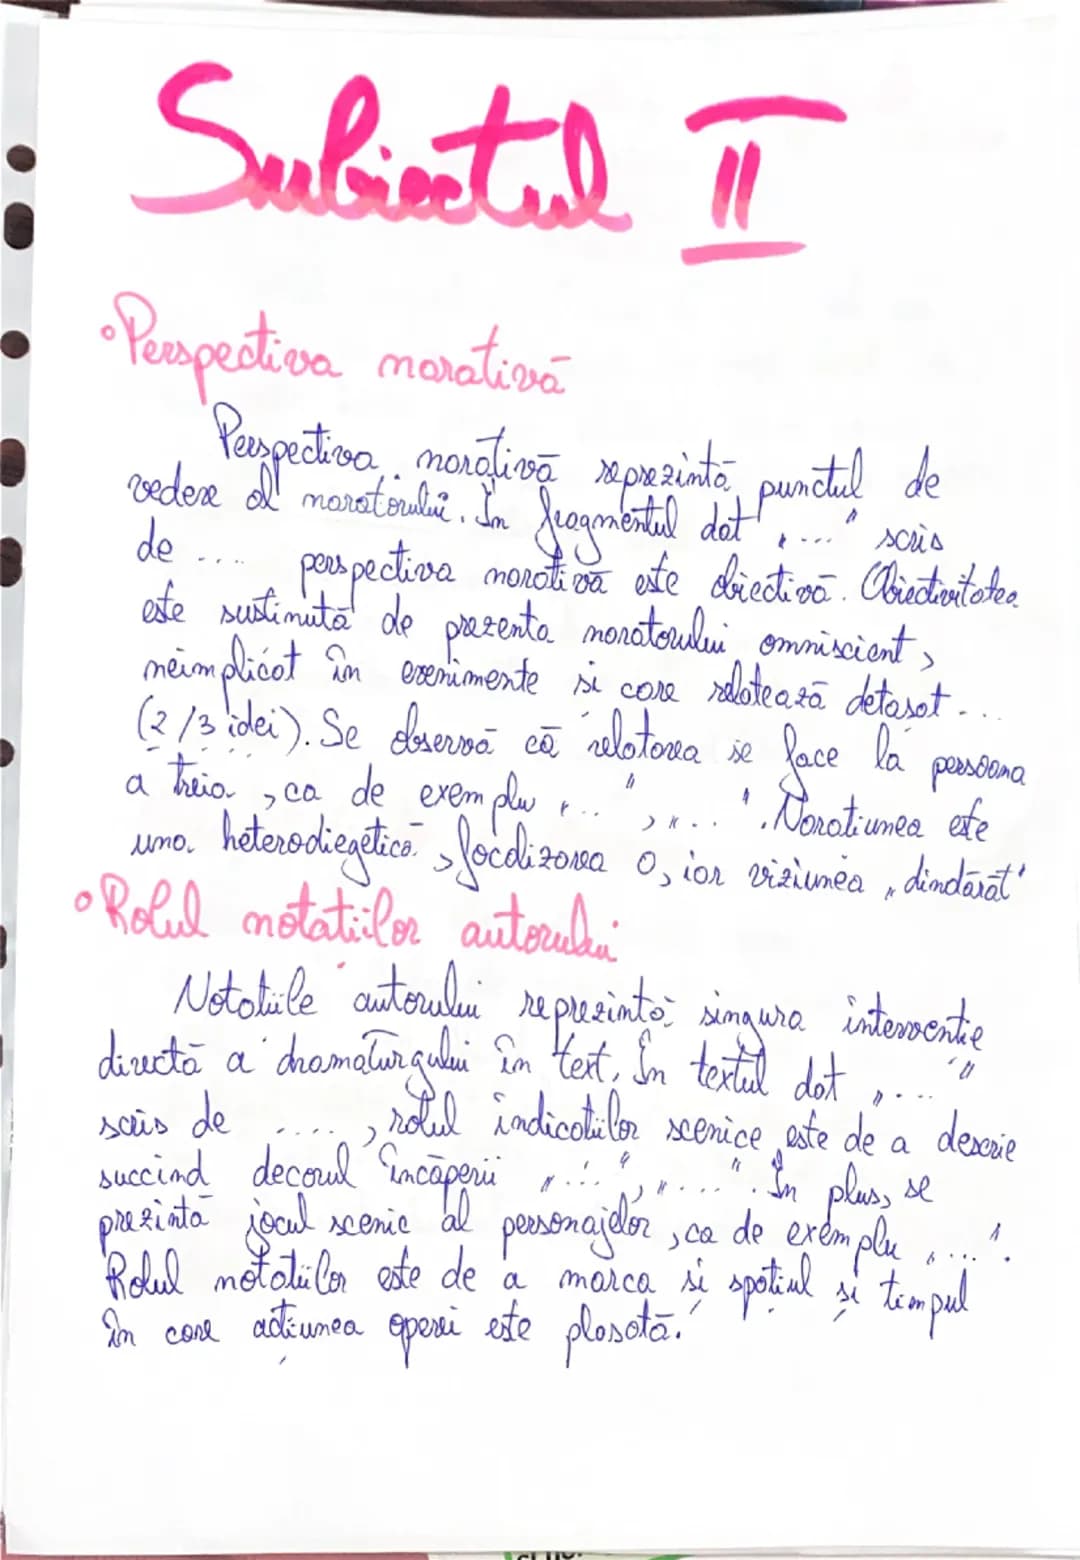 Subiectul II
• Perspectiva narativă
Perspectiva narativă reprezintă punctul de
vedere al naratorului. În fragmentul dat „...." scris
de .... perspectiva narativă este obiectivă. Obiectivitatea
este susținută de prezenta naratorului omniscient,
neimplicat în evenimente și care relatează detașat ....
(2/3 idei). Se observă că relatarea se face la persoana
a treia, ca de exemplu „...", „...". Narațiunea este
una heterodiegetică, focalizarea 0, iar viziunea „dindărăt"
• Rolul notațiilor autorului
Notațiile autorului reprezintă singura intervenție
directă a dramaturgului în text. În textul dat „...."
scris de ...., rolul indicațiilor scenice este de a descrie
succind decorul încăperii „....", „....". În plus, se
prezintă jocul scenic al personajelor, ca de exemplu „....".
Rolul notațiilor este de a marca și spațiul și timpul
în care acțiunea operei este plasată.